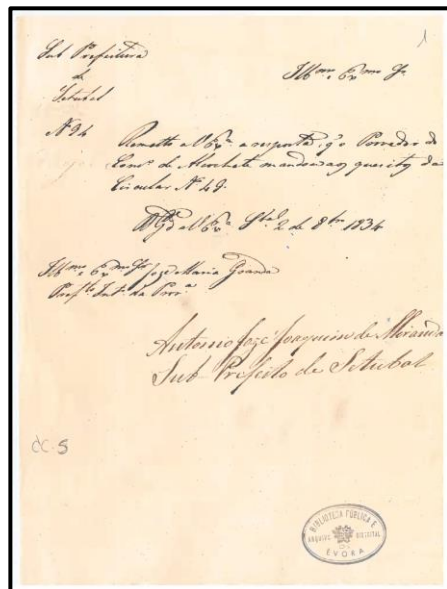 1
Sub Prefeitura
de
Setubal
Illmo e Exmo Sr
Nº 94
Remetto a V Exª a resposta, q o Provedor do
Conco de Alcochete mandou aos quesitos da
Circular Nº 49.
Ds Gde a V Exª Stal 2 de 8bro 1834
Illmo e Exmo Sr Joze Maria Grande
Prefto Into da Provª
Antonio Joze Joaquim de Miranda
Sub Prefeito de Setubal
dc. 5
BIBLIOTECA PÚBLICA E
ARQUIVO DISTRITAL
DE
ÉVORA